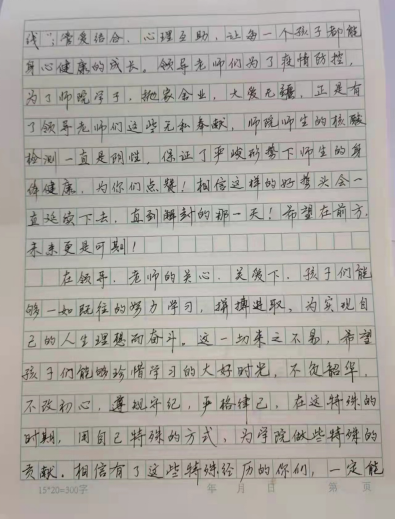 线";管爱结合,心理互助,让每一个孩子都能
身心健康的成长。领导老师们为了疫情防控,
为了师院学子,抛家舍业,大爱无疆,正是有
了领导老师们这些无私奉献,师院师生的核酸
检测一直是阴性,保证了严峻形势下师生的身
体健康,为你们点赞!相信这样的好势头会一
直延续下去,直到解封的那一天!希望在前方,
未来更是可期!
在领导、老师的关心、关爱下,孩子们能
够一如既往的努力学习,拼搏进取,为实现自
己的人生理想而奋斗。这一切来之不易,希望
孩子们能够珍惜学习的大好时光,不负韶华,
不改初心,遵规守纪,严格律己,在这特殊的
时期,用自己特殊的方式,为学院做些特殊的
贡献。相信有了这些特殊经历的你们,一定能
15*20=300字 年 月 日 第 页